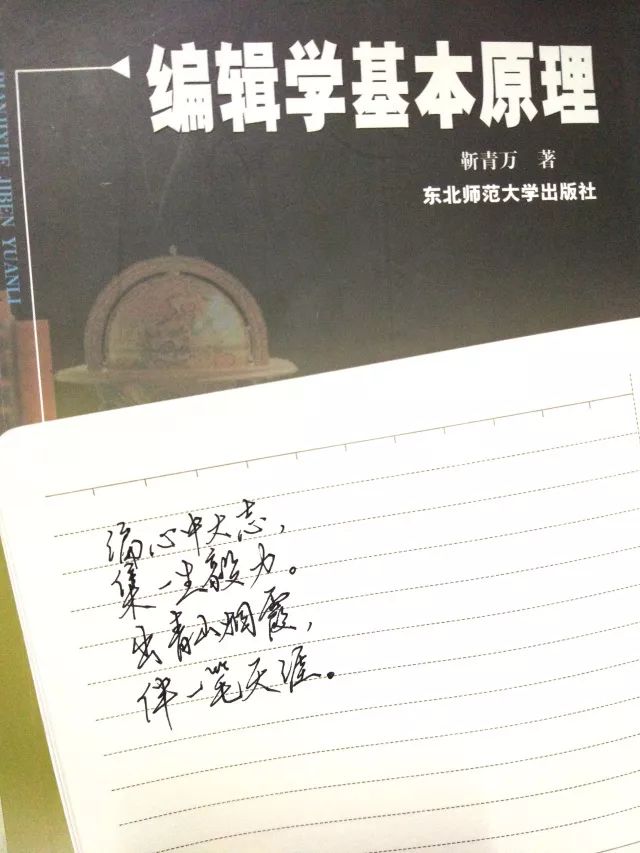 编辑学基本原理
靳青万 著
东北师范大学出版社
BIANJIXUE JIBEN YUANLI
编心中大志，
集一生毅力。
出青山烟霞，
伴一笔天涯。